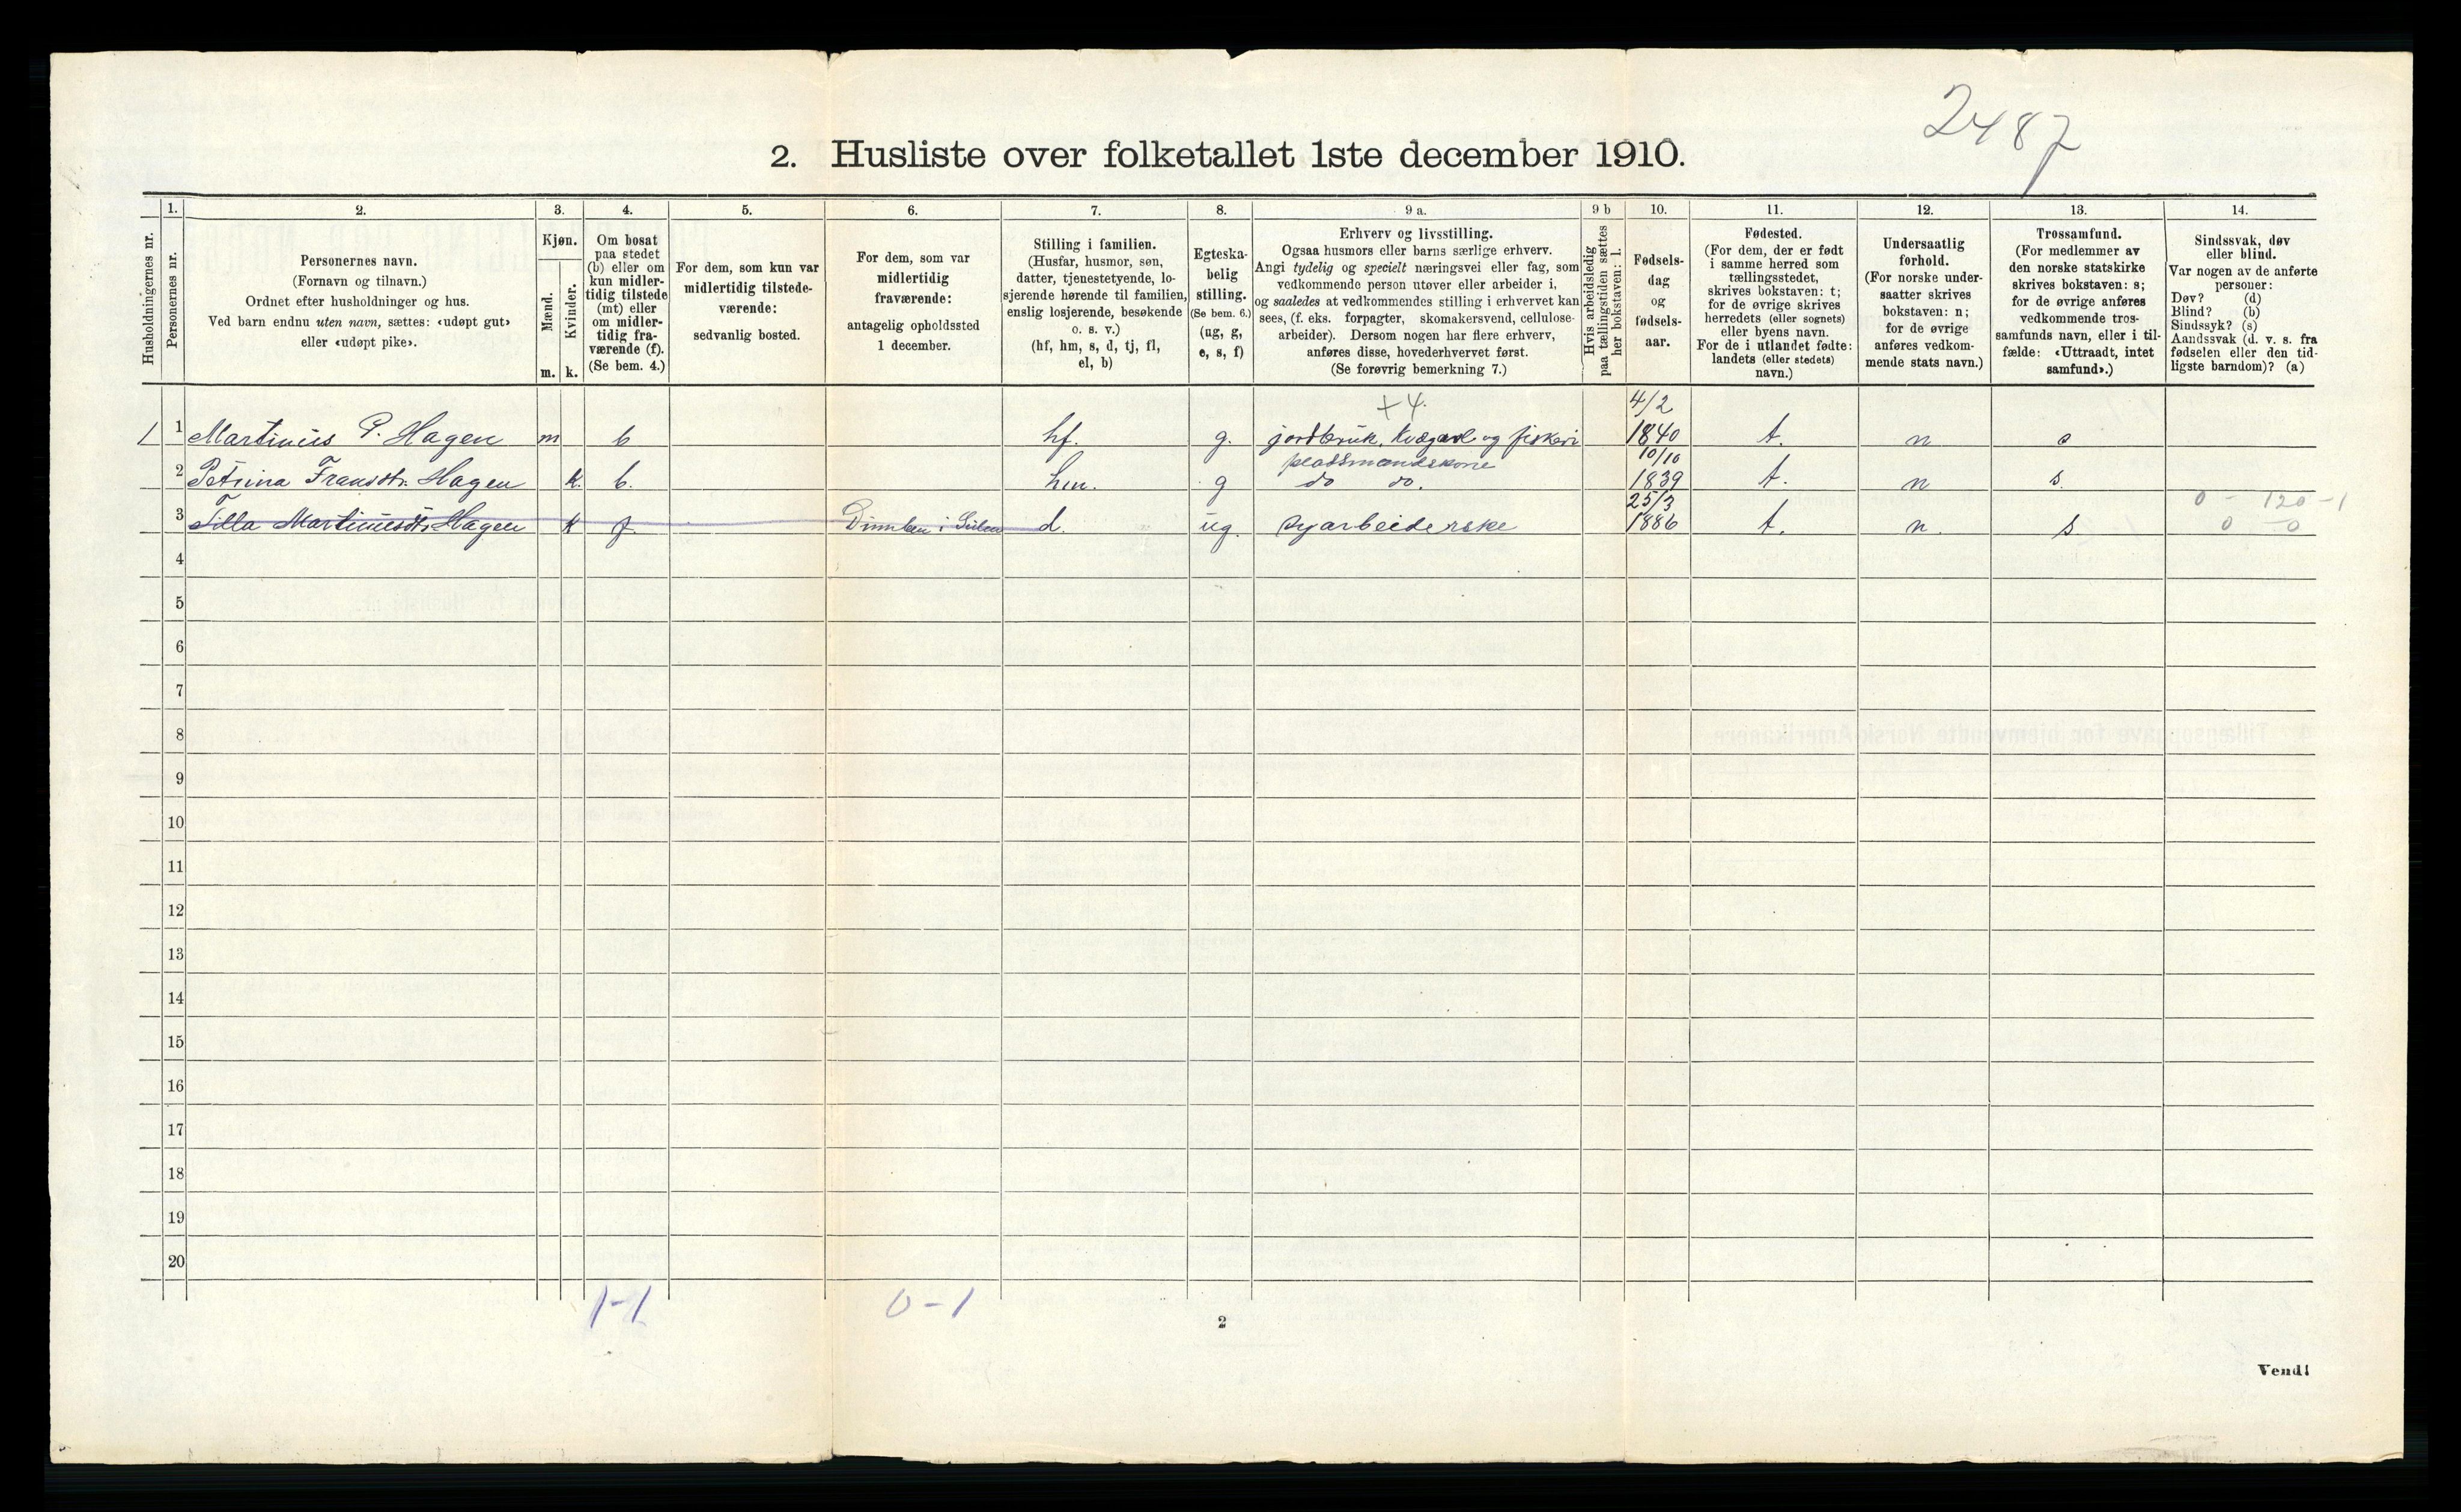 2487
2. Husliste over folketallet 1ste december 1910.
Husholdningernes nr.
1.
Personernes nr.
2.
Personernes navn.
(Fornavn og tilnavn.)
Ordnet efter husholdninger og hus.
Ved barn endnu uten navn, sættes: «udøpt gut»
eller «udøpt pike».
3.
Kjøn.
Mænd.
Kvinder.
m. k.
4.
Om bosat
paa stedet
(b) eller om
kun midler-
tidig tilstede
(mt) eller
om midler-
tidig fra-
værende (f).
(Se bem. 4.)
5.
For dem, som kun var
midlertidig tilstede-
værende:
sedvanlig bosted.
6.
For dem, som var
midlertidig
fraværende:
antagelig opholdssted
1 december.
7.
Stilling i familien.
(Husfar, husmor, søn,
datter, tjenestetyende, lo-
sjerende hørende til familien,
enslig losjerende, besøkende
o. s. v.)
(hf, hm, s, d, tj, fl,
el, b)
8.
Egteska-
belig
stilling.
(Se bem. 6.)
(ug, g,
e, s, f)
9 a.
Erhverv og livsstilling.
Ogsaa husmors eller barns særlige erhverv.
Angi tydelig og specielt næringsvei eller fag, som
vedkommende person utøver eller arbeider i,
og saaledes at vedkommendes stilling i erhvervet kan
sees, (f. eks. forpagter, skomakersvend, cellulose-
arbeider). Dersom nogen har flere erhverv,
anføres disse, hovederhvervet først.
(Se forøvrig bemerkning 7.)
9 b
Hvis arbeidsledig
paa tællingstiden sættes
her bokstaven: l.
10.
Fødsels-
dag
og
fødsels-
aar.
11.
Fødested.
(For dem, der er født
i samme herred som
tællingsstedet,
skrives bokstaven: t;
for de øvrige skrives
herredets (eller sognets)
eller byens navn.
For de i utlandet fødte:
landets (eller stedets)
navn.)
12.
Undersaatlig
forhold.
(For norske under-
saatter skrives
bokstaven: n;
for de øvrige
anføres vedkom-
mende stats navn.)
13.
Trossamfund.
(For medlemmer av
den norske statskirke
skrives bokstaven: s;
for de øvrige anføres
vedkommende tros-
samfunds navn, eller i til-
fælde: «Uttraadt, intet
samfund».)
14.
Sindssvak, døv
eller blind.
Var nogen av de anførte
personer:
Døv? (d)
Blind? (b)
Sindssyk? (s)
Aandssvak (d. v. s. fra
fødselen eller den tid-
ligste barndom)? (a)
+4. 4/2
1 1 Martinius P. Hagen m b hf. g. jordbruk, kvægavl og fiskeri 1840 t. n s
plassmandskone 10/10
2 Petrina Fransdtr. Hagen k. b. hm. g do do. 1839 t. n s.
25/3 0 - 120 - 1
3 Tilla Martiniusdtr. Hagen k f. i d. ug. syarbeiderske 1886 t. n. s. 0 - 0
4
5
6
7
8
9
10
11
12
13
14
15
16
17
18
19
20
1-1 0-1
2
Vend!